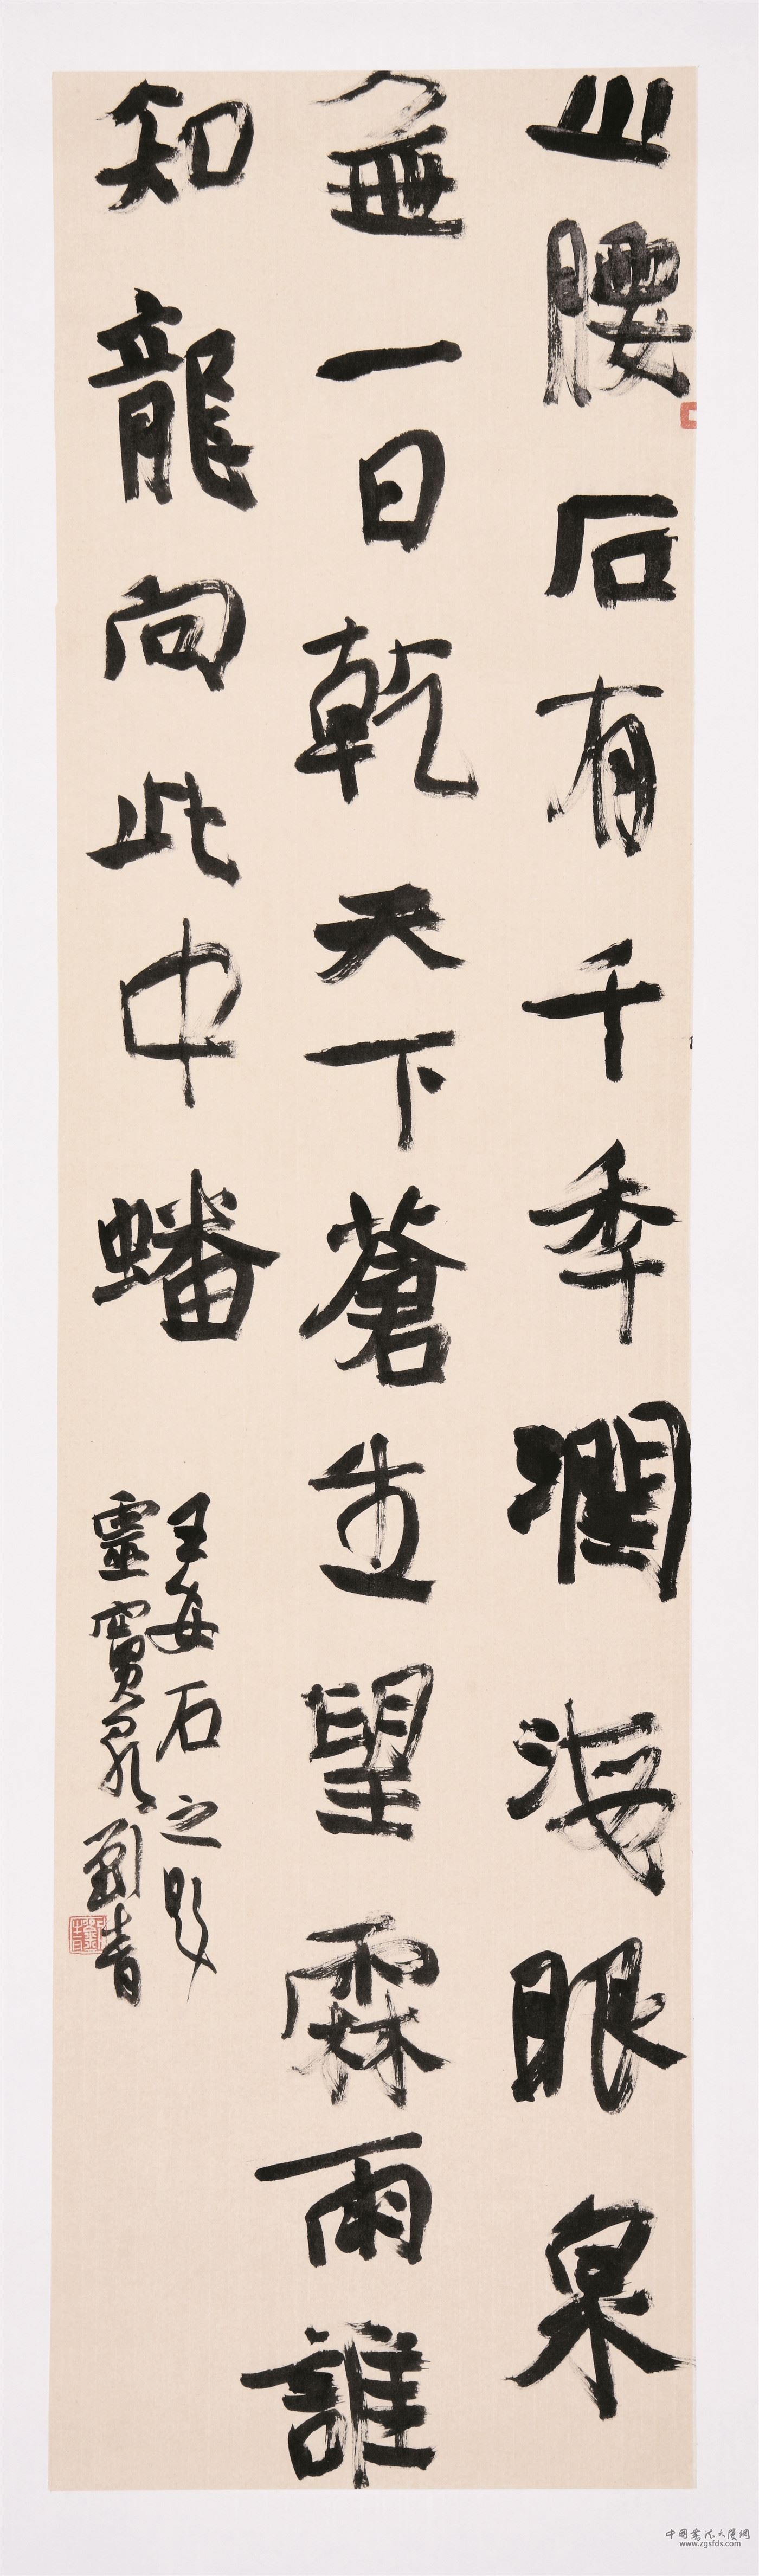 山腰石有千秊潤海眼泉
無一日乾天下蒼生望霖雨誰
知龍向此中蟠
王安石之題
靈寶泉劉青
中國書法大廈網
www.zgsfds.com